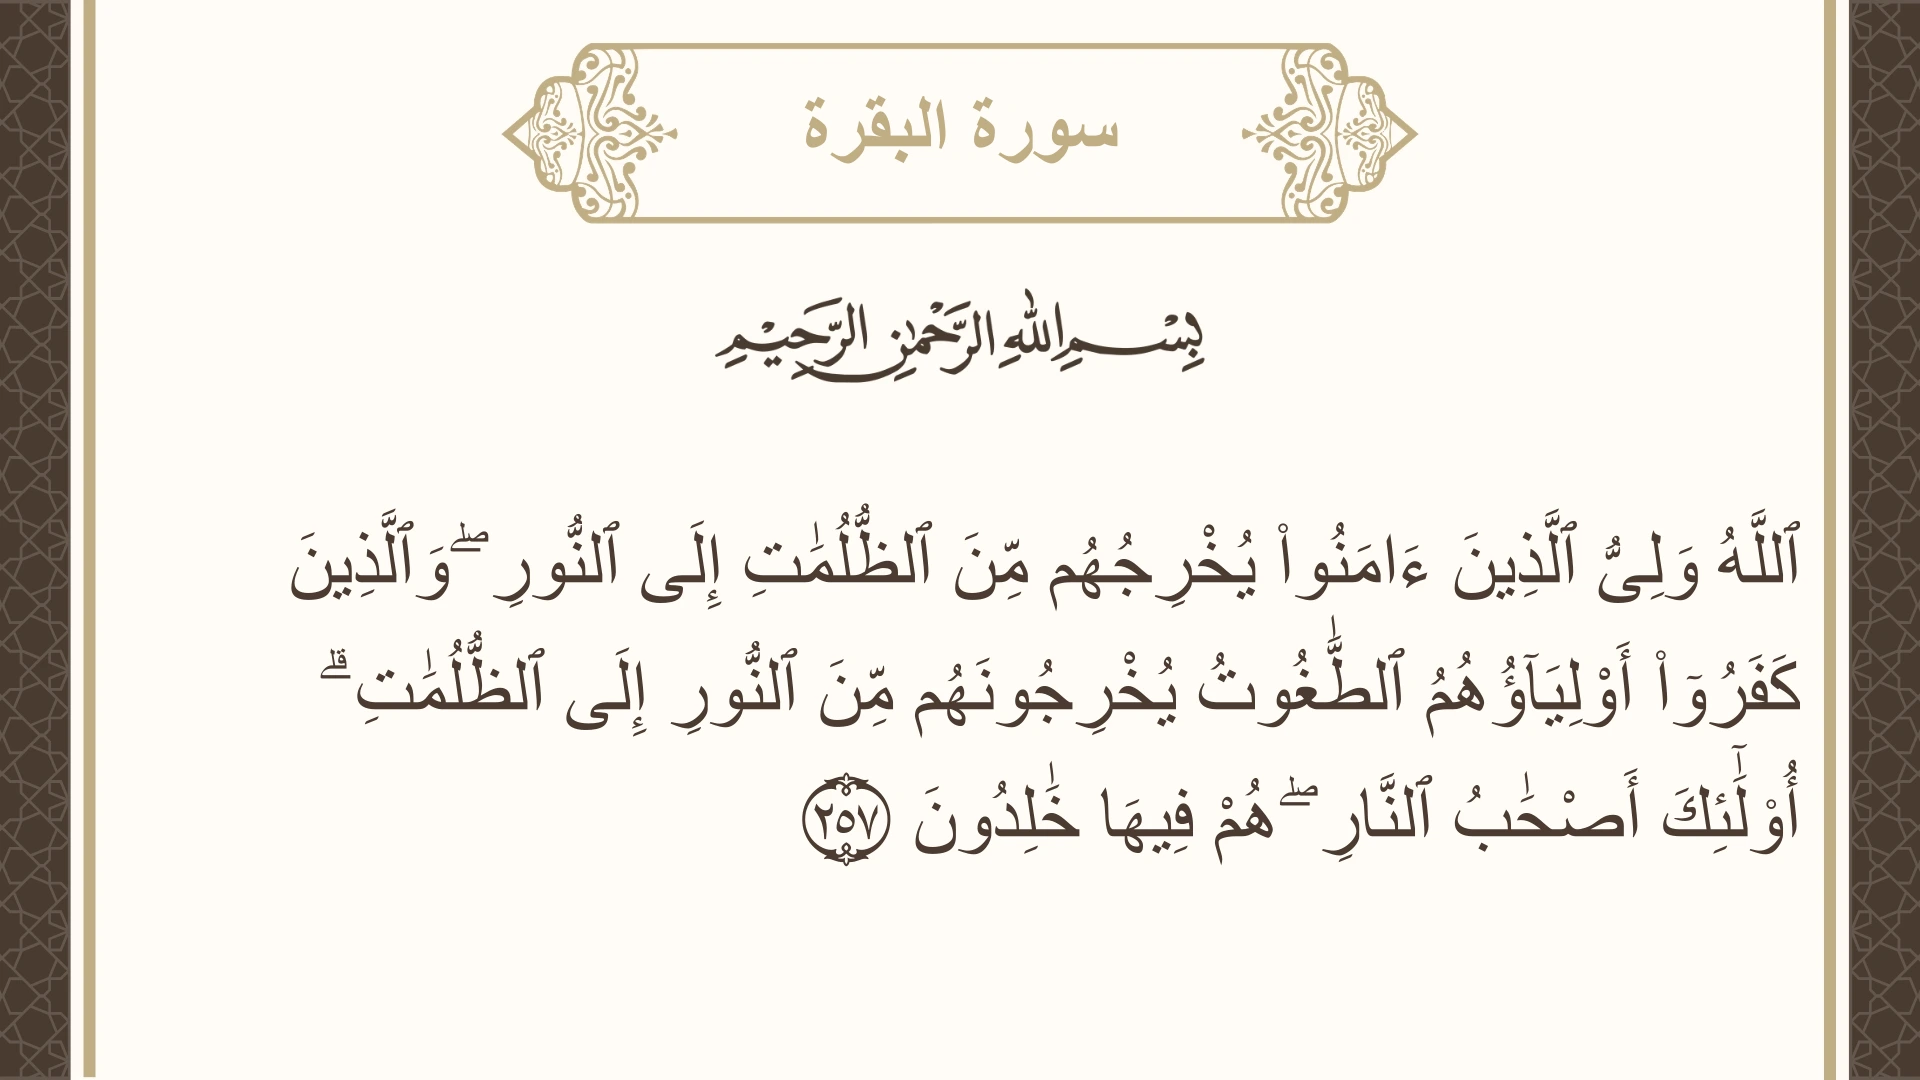 سورة البقرة
بِسْمِ اللهِ الرَّحْمٰنِ الرَّحِيْمِ
ٱللَّهُ وَلِىُّ ٱلَّذِينَ ءَامَنُوا۟ يُخْرِجُهُم مِّنَ ٱلظُّلُمَـٰتِ إِلَى ٱلنُّورِ ۖ وَٱلَّذِينَ
كَفَرُوٓا۟ أَوْلِيَآؤُهُمُ ٱلطَّـٰغُوتُ يُخْرِجُونَهُم مِّنَ ٱلنُّورِ إِلَى ٱلظُّلُمَـٰتِ ۗ
أُو۟لَـٰٓئِكَ أَصْحَـٰبُ ٱلنَّارِ ۖ هُمْ فِيهَا خَـٰلِدُونَ ٢٥٧